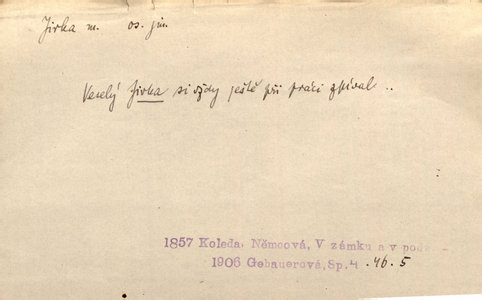 Jirka m. os. jm.
Veselý Jirka si vždy ještě při práci zpíval ..
1857 Koleda. Němcová, V zámku a v podz
1906 Gebauerová, Sp. 4 .46.5